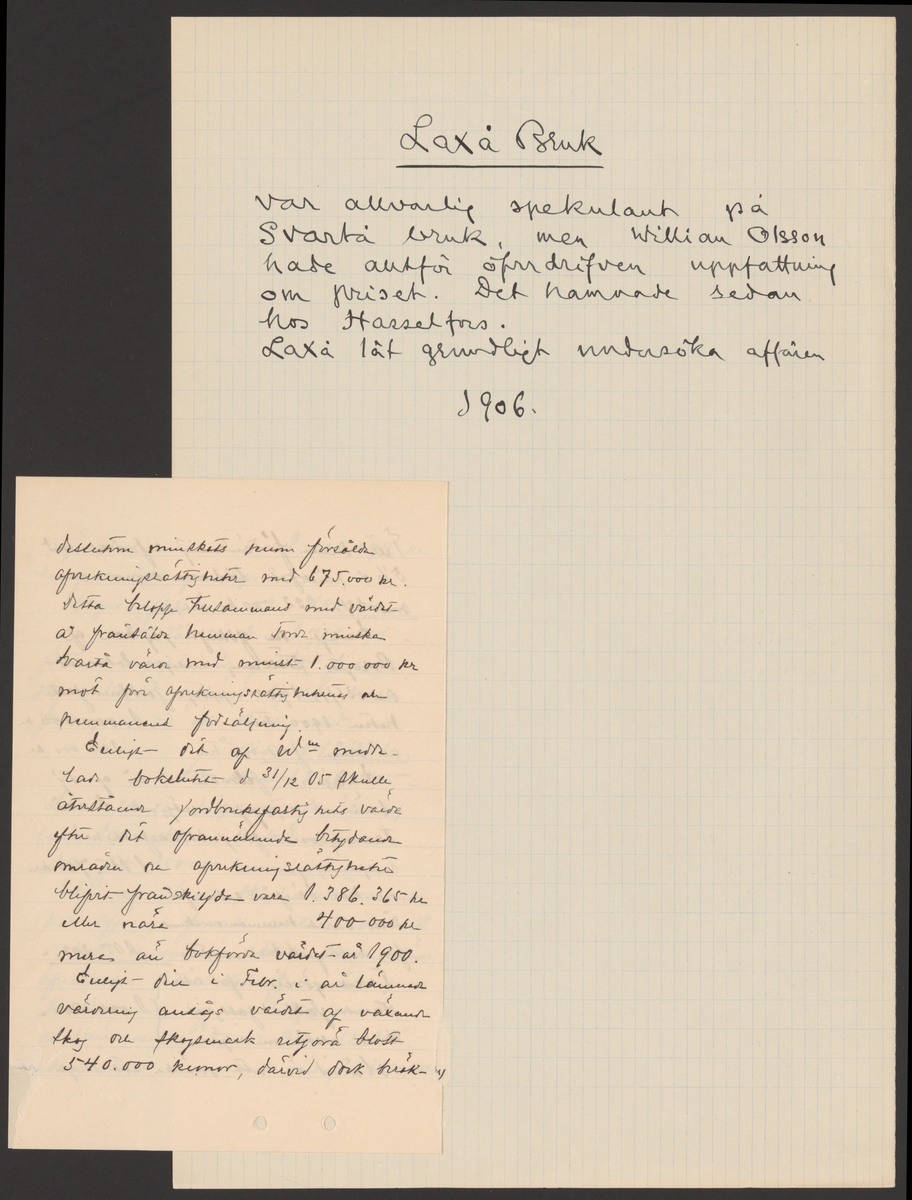 Laxå Bruk
var allvarlig spekulant på
Svartå bruk, men William Olsson
hade alltför öfverdrifven uppfattning
om priset. Det hamnade sedan
hos Hasselfors.
Laxå lät grundligt undersöka affären
1906.
dessutom minskats genom försålda
afverkningsrättigheter med 675.000 kr.
Detta belopp tillsammans med värdet
af frånsålda hemman torde minska
Svartå värde med minst 1.000 000 kr
mot före afverkningsrättigheternas och
hemmanens försäljning.
Enligt det af Wm medde-
lade bokslutet d 31/12 05 skulle
återstående jordbruksfastighets värde
efter det ofvannämnda betydande
områden och afverkningsrättigheter
blifvit frånskiljda vara 1.386.365 kr
eller nära 400 000 kr
mera än bokförda värdet år 1900.
Enligt den i Febr. i år lämnade
värdering antogs värdet af växande
skog och skogsmark utgöra blott
540.000 kronor, därvid dock beräk-